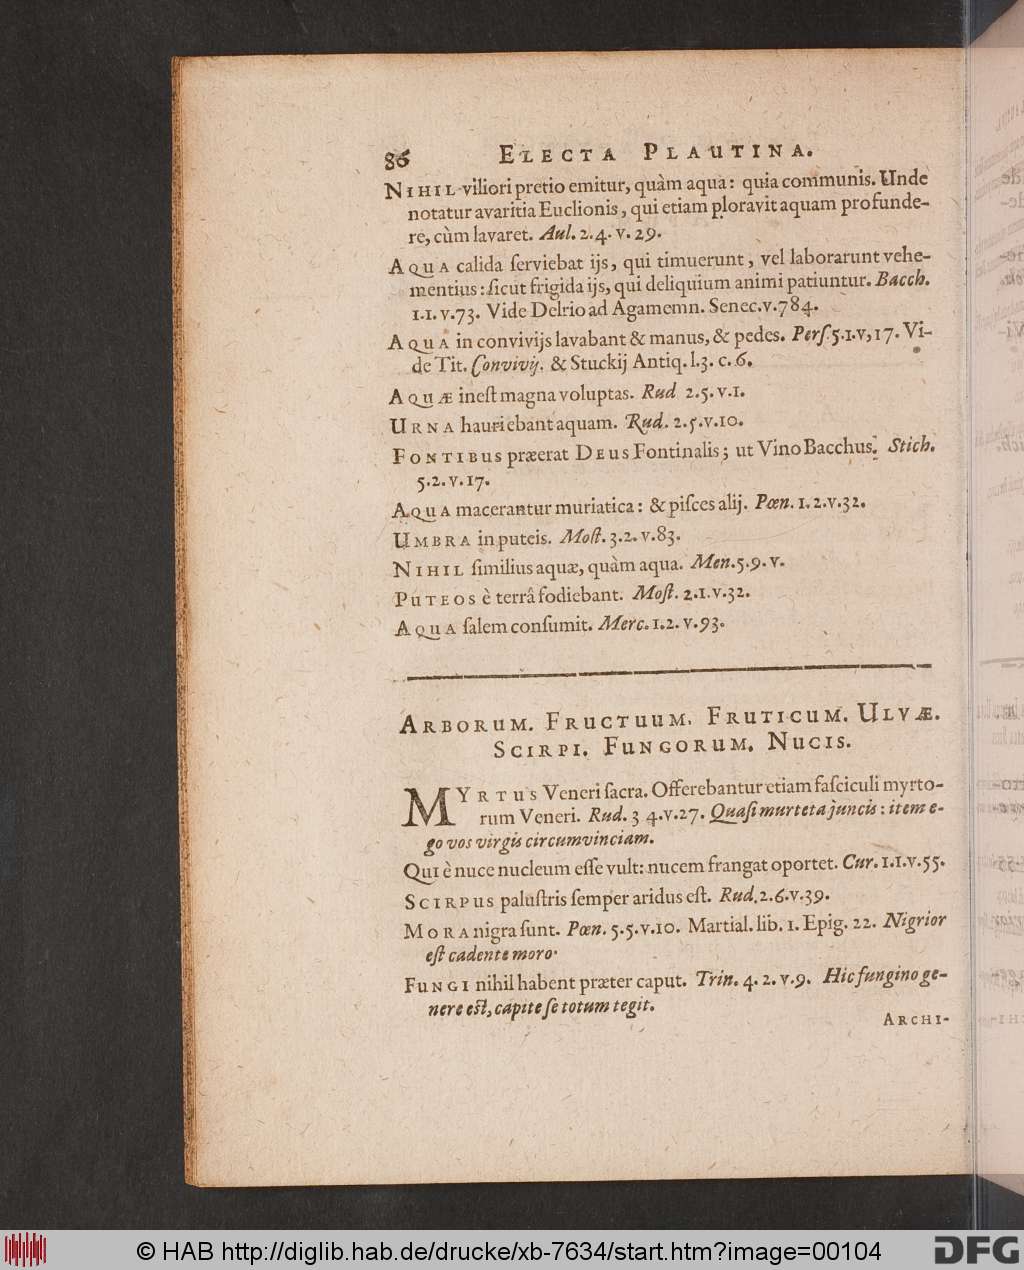 86 ELECTA PLAUTINA.
NIHIL viliori pretio emitur, quàm aqua: quia communis. Unde
notatur avaritia Euclionis, qui etiam ploravit aquam profunde-
re, cùm lavaret. Aul. 2.4. v. 29.
AQUA calida serviebat ijs, qui timuerunt, vel laborarunt vehe-
mentius: sicut frigida ijs, qui deliquium animi patiuntur. Bacch.
1.1. v.73. Vide Delrio ad Agamemn. Senec.v.784.
AQUA in convivijs lavabant & manus, & pedes. Pers. 5.1.v,17. Vi-
de Tit. Convivij. & Stuckij Antiq. l.3. c. 6.
AQUÆ inest magna voluptas. Rud 2.5.v.1.
URNA hauriebant aquam. Rud. 2.5.v.10.
FONTIBUS præerat DEUS Fontinalis; ut Vino Bacchus. Stich.
5.2. v.17.
AQUA macerantur muriatica: & pisces alij. Pœn. 1.2.v.32.
UMBRA in puteis. Most. 3.2. v.83.
NIHIL similius aquæ, quàm aqua. Men. 5.9. v.
PUTEOS è terrâ fodiebant. Most. 2.1.v.32.
AQUA salem consumit. Merc. 1.2. v.93.
ARBORUM. FRUCTUUM. FRUTICUM. ULVÆ.
SCIRPI. FUNGORUM. NUCIS.
MYRTUS Veneri sacra. Offerebantur etiam fasciculi myrto-
rum Veneri. Rud. 3 4.v.27. Quasi murteta juncis: item e-
go vos virgis circumvinciam.
QUI è nuce nucleum esse vult: nucem frangat oportet. Cur. 1.1.v.55.
SCIRPUS palustris semper aridus est. Rud. 2.6.v.39.
MORA nigra sunt. Pœn. 5.5.v.10. Martial. lib. 1. Epig. 22. Nigrior
est cadente moro.
FUNGI nihil habent præter caput. Trin. 4. 2. v.9. Hic fungino ge-
nere est, capite se totum tegit.
ARCHI-
© HAB http://diglib.hab.de/drucke/xb-7634/start.htm?image=00104
DFG